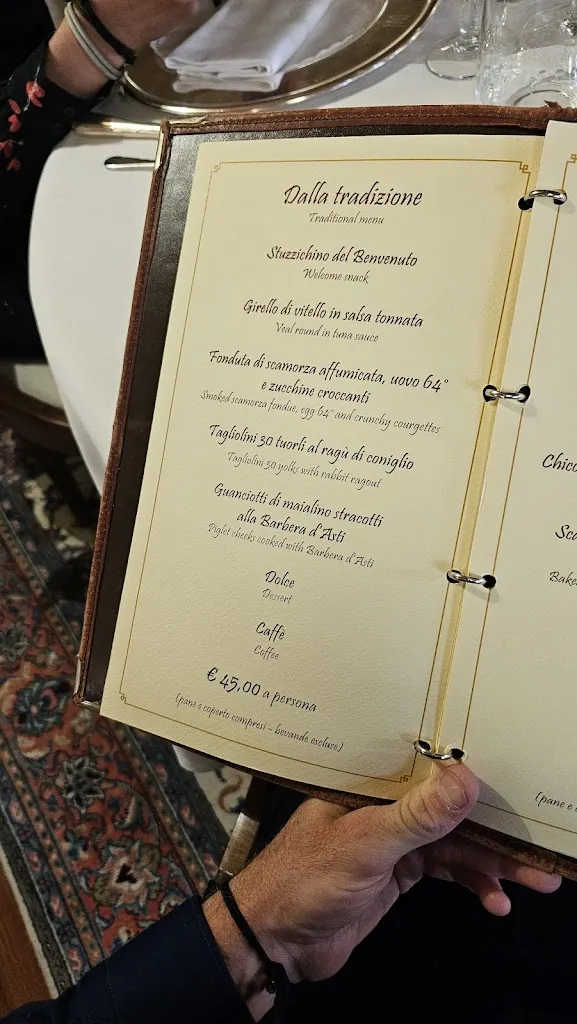 Dalla tradizione
Traditional menu
Stuzzichino del Benvenuto
Welcome snack
Girello di vitello in salsa tonnata
Veal round in tuna sauce
Fonduta di scamorza affumicata, uovo 64°
e zucchine croccanti
Smoked scamorza fondue, egg 64° and crunchy courgettes
Tagliolini 30 tuorli al ragù di coniglio
Tagliolini 30 yolks with rabbit ragout
Guanciotti di maialino stracotti
alla Barbera d'Asti
Piglet cheeks cooked with Barbera d'Asti
Dolce
Dessert
Caffè
Coffee
€ 45,00 a persona
(pane e coperto compresi - bevande escluse)
Chicc
Sca
Bake
(pane e c